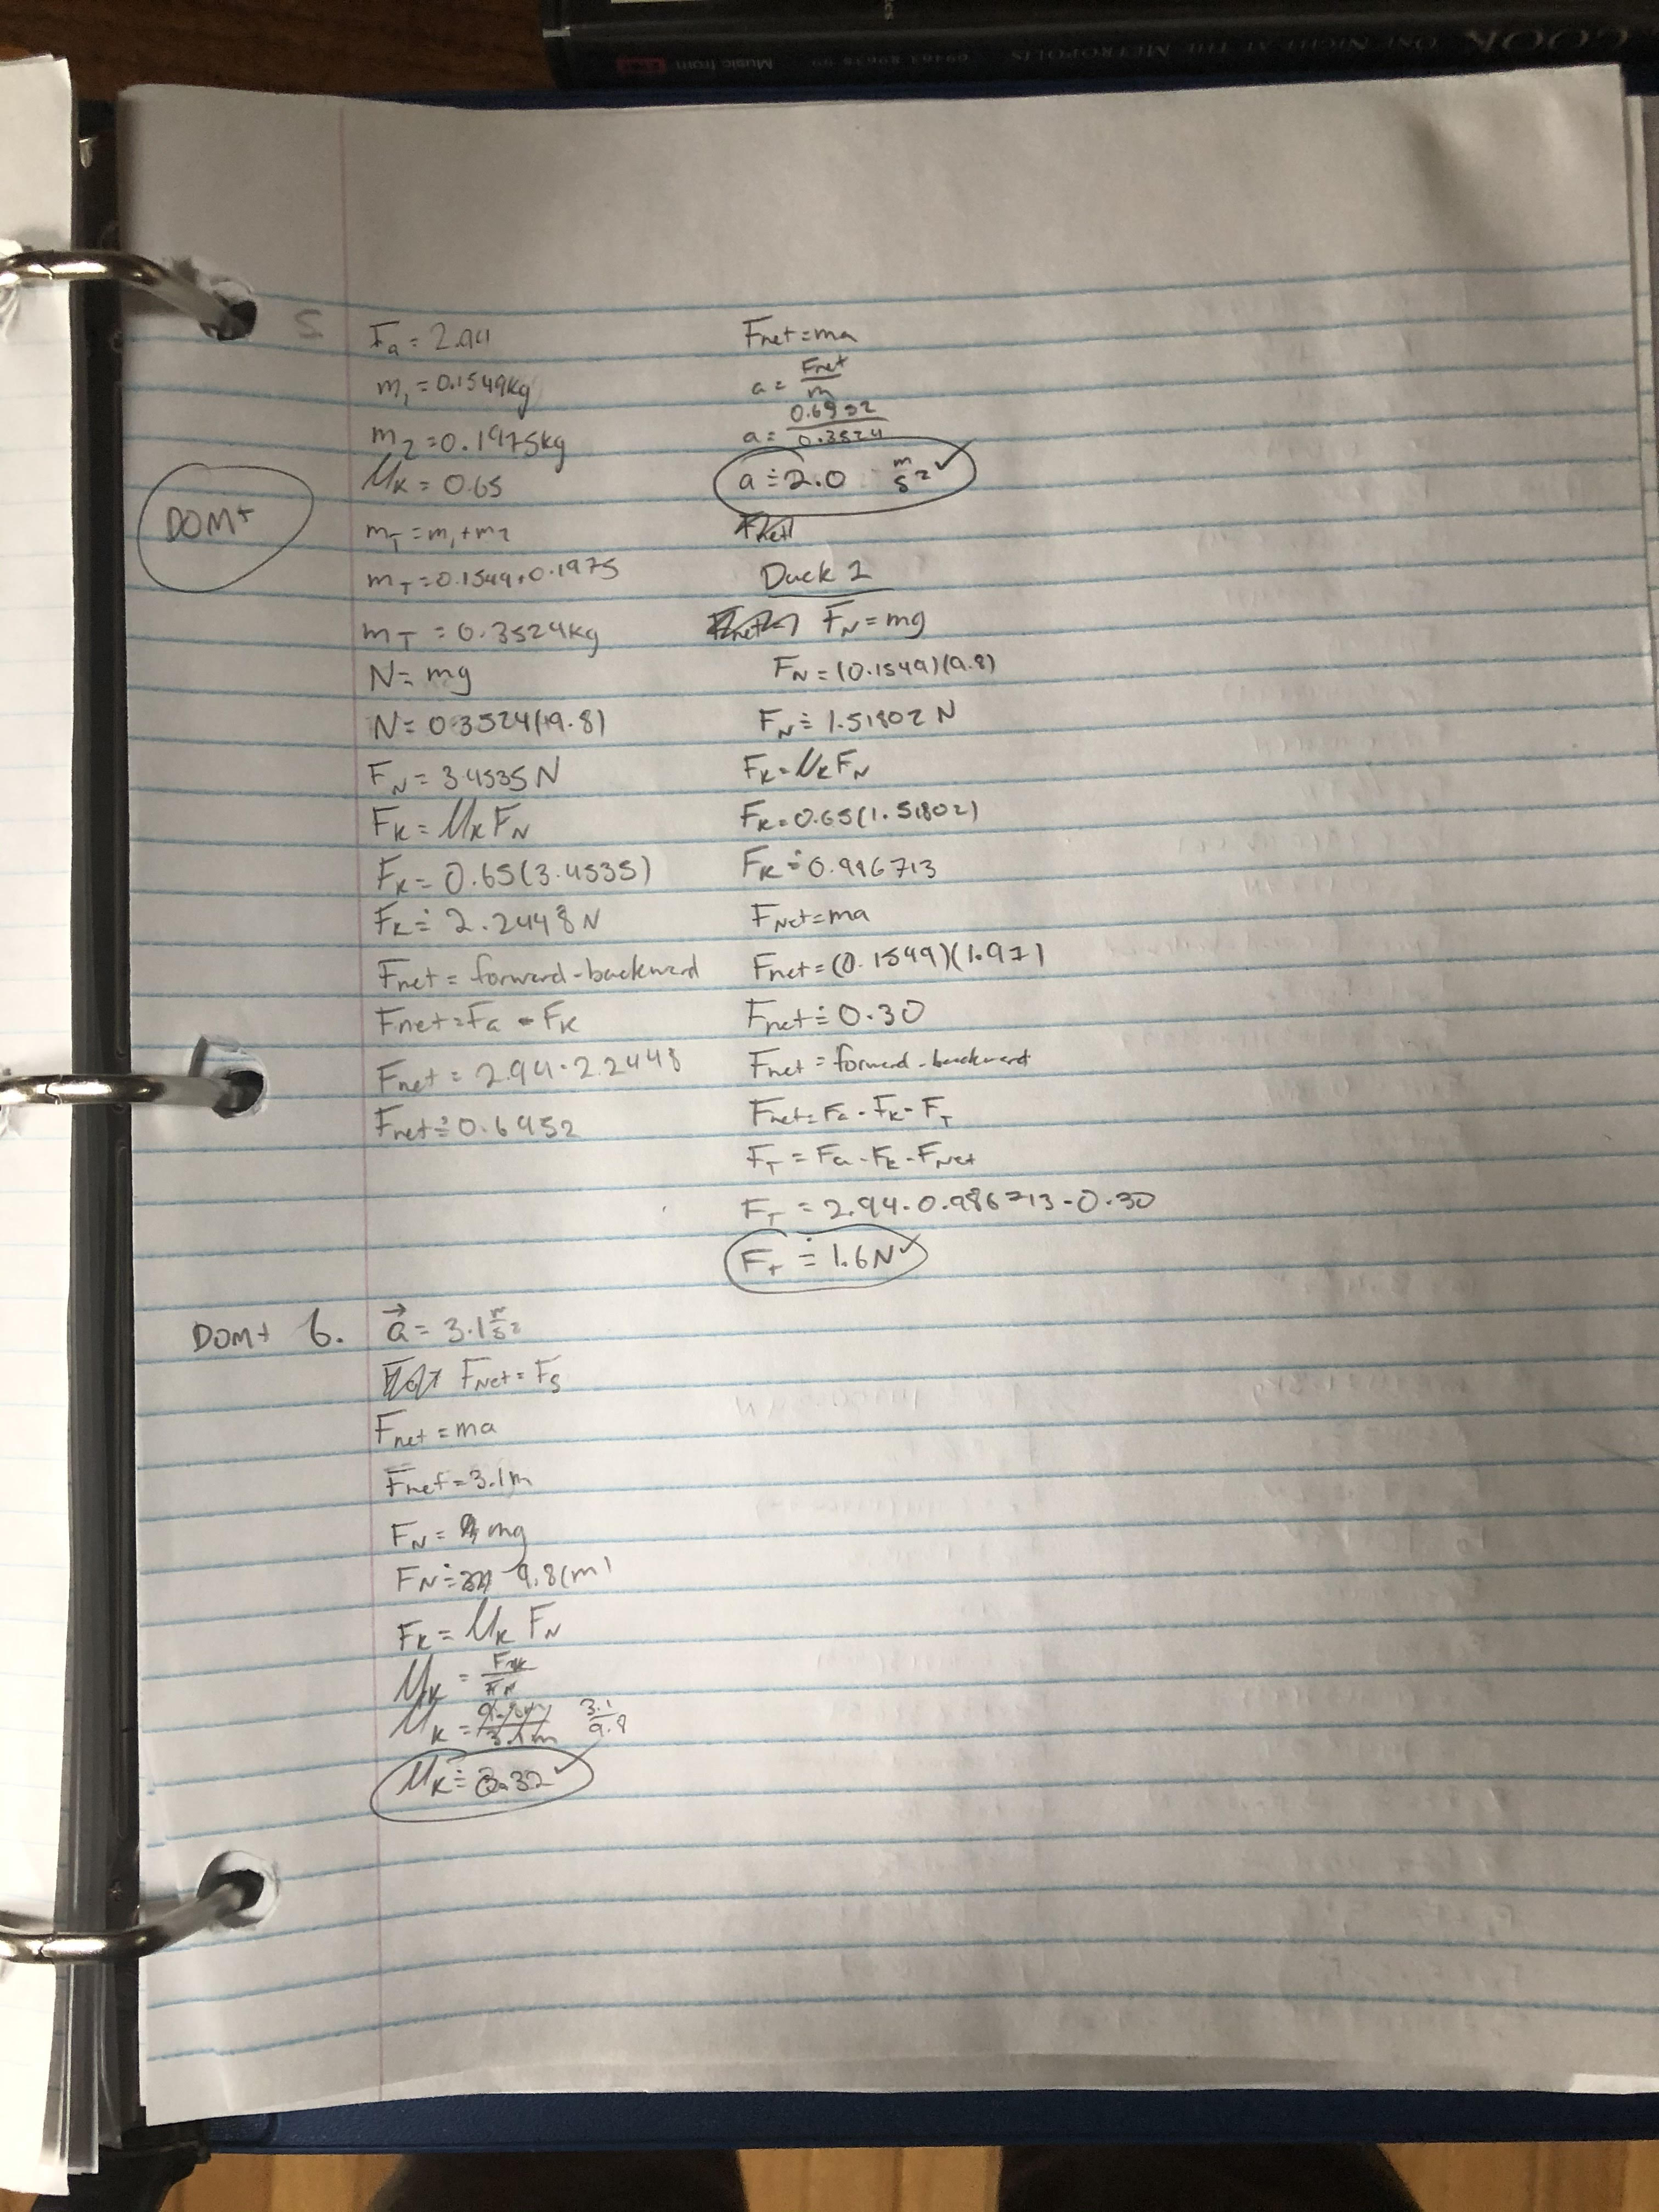 COOK ONE NIGHT AT THE METROPOLIS
Music from
5
F_a = 2.94
m_1 = 0.1549kg
m_2 = 0.1975kg
μ_K = 0.65
DOM+
m_T = m_1 + m_2
m_T = 0.1549+0.1975
m_T = 0.3524kg
N = mg
N = 0.3524(9.8)
F_N = 3.4535 N
F_K = μ_K F_N
F_K = 0.65(3.4535)
F_K ≐ 2.2448 N
Fnet = forward - backward
Fnet = Fa - F_K
Fnet = 2.94 - 2.2448
Fnet ≐ 0.6952
Fnet = ma
a = Fnet/m
a = 0.6952/0.3524
a ≐ 2.0 m/s² ✓
Duck 1
F_N = mg
F_N = (0.1549)(9.8)
F_N ≐ 1.51802 N
F_K = μ_K F_N
F_K = 0.65(1.51802)
F_K ≐ 0.986713
FNet = ma
Fnet = (0.1549)(1.97)
Fnet ≐ 0.30
Fnet = forward - backward
Fnet = Fa - F_K - F_T
F_T = Fa - F_K - FNet
F_T = 2.94 - 0.986713 - 0.30
F_T ≐ 1.6N ✓
DOM+ 6. a⃗ = 3.1 m/s²
FNet = F_s
Fnet = ma
Fnet = 3.1m
F_N = mg
F_N ≐ 9.8(m)
F_K = μ_K F_N
μ_K =
μ_K = 3.1/9.8
μ_K ≐ 0.32 ✓